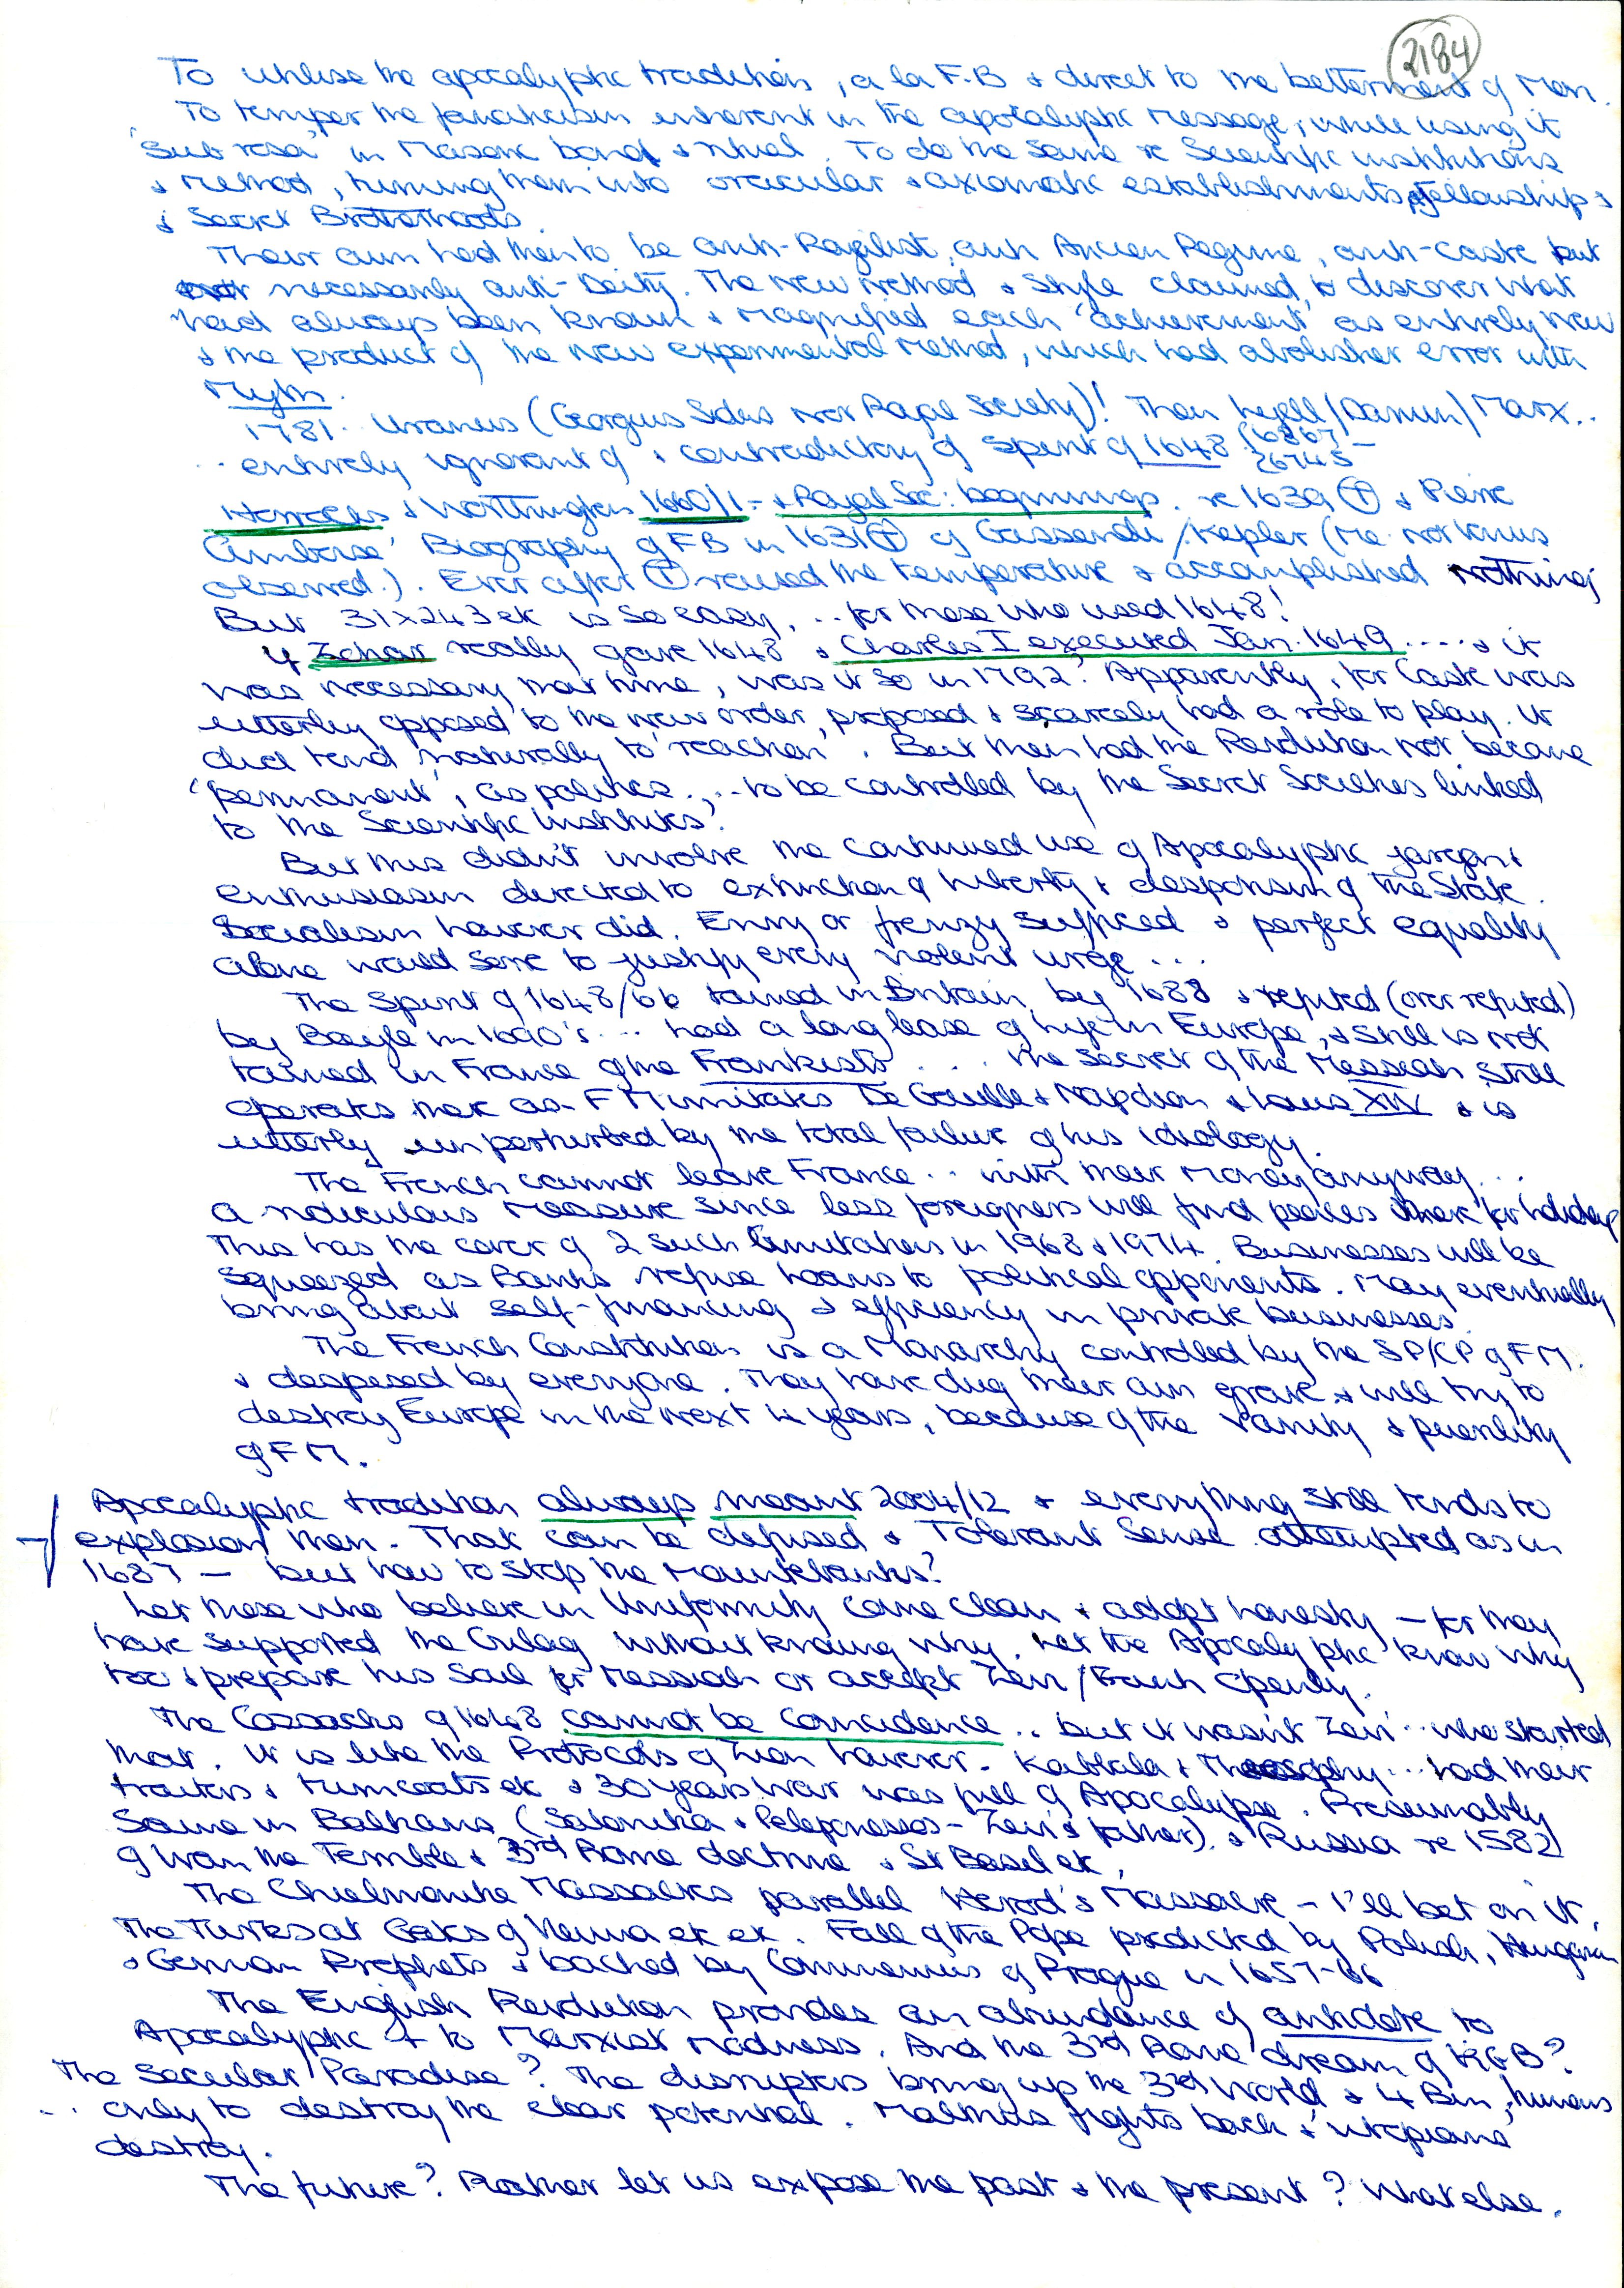 2184
To utilise the apocalyptic tradition, a la F.B & direct to the betterment of Man.
To temper the fanaticism inherent in the apocalyptic message, while using it
'Sub rosa' in Masonic bond & ritual. To do the same re Scientific institutions
& method, turning them into oracular & axiomatic establishments, fellowships
& Secret Brotherhoods.
Their aim had then to be anti-Royalist, anti Ancien Regime, anti-Caste but
not necessarily anti-Deity. The new method & style claimed to discover what
had always been known & magnified each 'achievement' as entirely new
& the product of the new experimental method, which had abolished error with
Myth.
1781. Uranus (Georgius Sidus not Royal Society)! Then Lyell/Darwin/Marx..
.. entirely ignorant of & contradictory of Spirit of 1648
Horrocks & Worthington 1660/1 - & Royal Soc: beginnings. re 1639 & Pierre
Amboise' Biography of FB in 1631 of Gassendi/Kepler (Me. not Venus
observed.). Ever after raised the temperature & accomplished nothing
But 31x243 etc is so easy, ... for those who used 1648!
If Zohar really gave 1648 & Charles I executed Jan. 1649 .... & it
was necessary that time, was it so in 1792? Apparently, for Caste was
utterly opposed to the new order, proposed & scarcely had a role to play. It
did tend naturally to 'reaction'. But then had the Revolution not become
'permanent', as politics.,.. to be controlled by the Secret Societies linked
to the Scientific Institutes?
But this didn't involve the continued use of Apocalyptic jargon &
enthusiasm directed to extinction of liberty & despotism of the State.
Socialism however did. Envy or frenzy sufficed & perfect equality
alone would serve to justify every violent urge ...
The Spirit of 1648/66 tamed in Britain by 1688 & refuted (over refuted)
by Bayle in 1690's ... had a long lease of life in Europe, & still is not
tamed in France of the Frankists .... The secret of the Messiah still
operates there as FM imitates De Gaulle & Napoleon & Louis XIV & is
utterly unperturbed by the total failure of his ideology.
The French cannot leave France .. with their money anyway...
a ridiculous measure since less foreigners will find places there for holidays
This has the cover of 2 such limitations in 1968 & 1974. Businesses will be
squeezed as Banks refuse loans to political opponents. May eventually
bring about self-financing & efficiency in private businesses.
The French Constitution is a Monarchy controlled by the SP/CP of FM.
& despised by everyone. They have dug their own grave & will try to
destroy Europe in the next 4 years, because of the vanity & puerility
of FM.
Apocalyptic tradition always meant 2004/12 & everything still tends to
explosion then. That can be defused & Tolerant Sense attempted as in
1687 — but how to stop the Mountebanks?
Let those who believe in Uniformity come clean & adopt honesty — for they
have supported the Gulag without knowing why. Let the Apocalyptic know why
too & prepare his soul for Messiah or accept Zevi/Frank openly.
The Cossacks of 1648 cannot be coincidence .. but it wasn't Zevi .. who started
that. It is like the Protocols of Zion however. Kabbala & Theosophy ... had their
traitors & turncoats etc & 30 years War was full of Apocalypse. Presumably
Same in Balkans (Salonika & Peleponessos - Zevi's father). & Russia re 1582
of Ivan the Terrible & 3rd Rome doctrine & St Basil etc.
The Chielmonike Massacres parallel Herod's Massacre - I'll bet on it.
The Turks at Gates of Vienna etc etc. Fall of the Pope predicted by Polish, Hungarian
& German Prophets & backed by Commenius of Prague in 1657-66
The English Revolution provides an abundance of antidote to
Apocalyptic & to Marxist madness. And the 3rd Rome dream of KGB?
The Secular Paradise? The disrupters bring up the 3rd World & 4 Bln, humans
.. only to destroy the clear potential. Malthus fights back & 'utopians'
destroy.
The future? Rather let us expose the past & the present? What else.